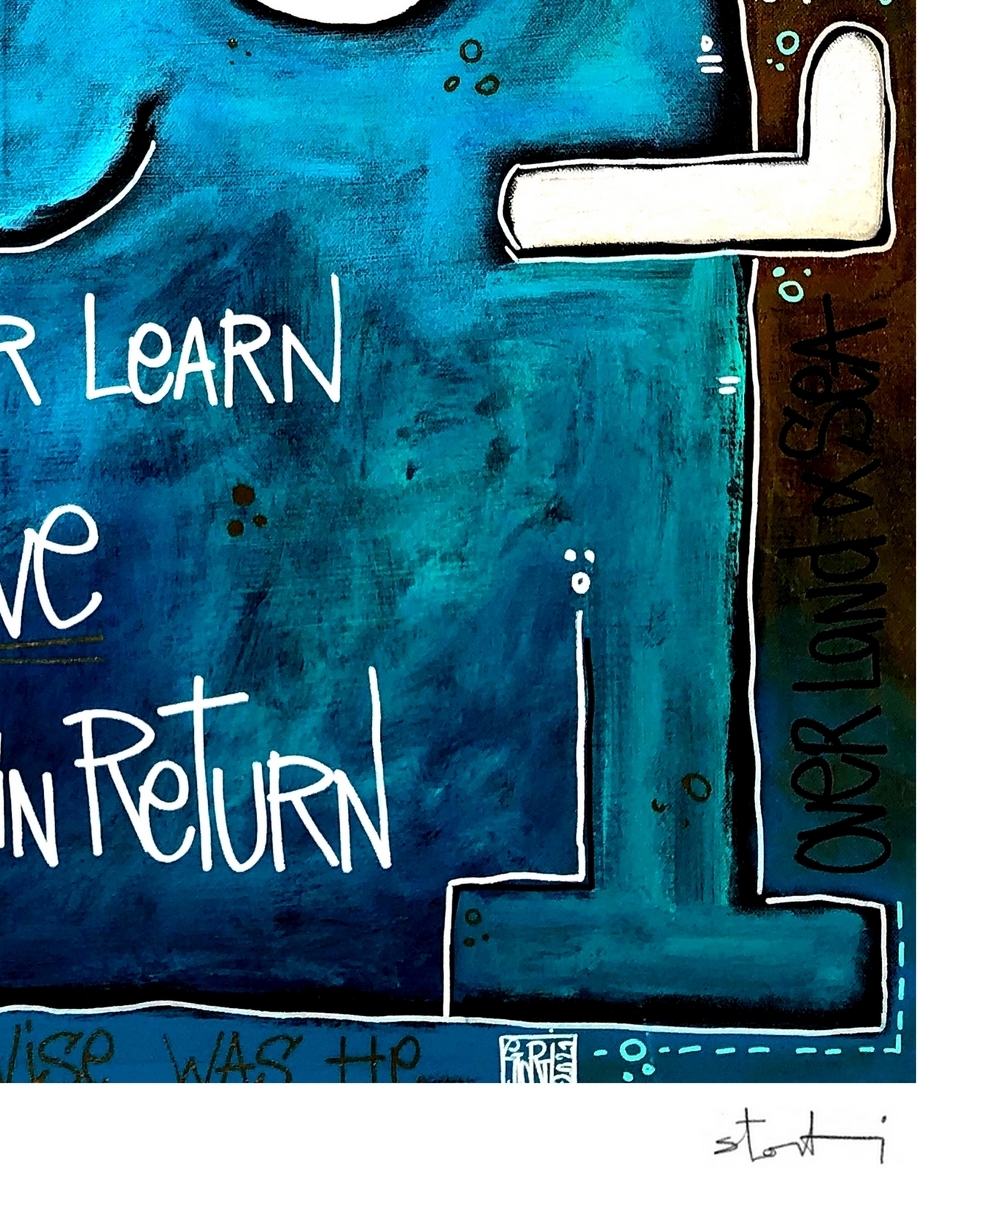 R LeARN
ve
IN ReTURN
OVER LAND & SeA
WISe WAS He